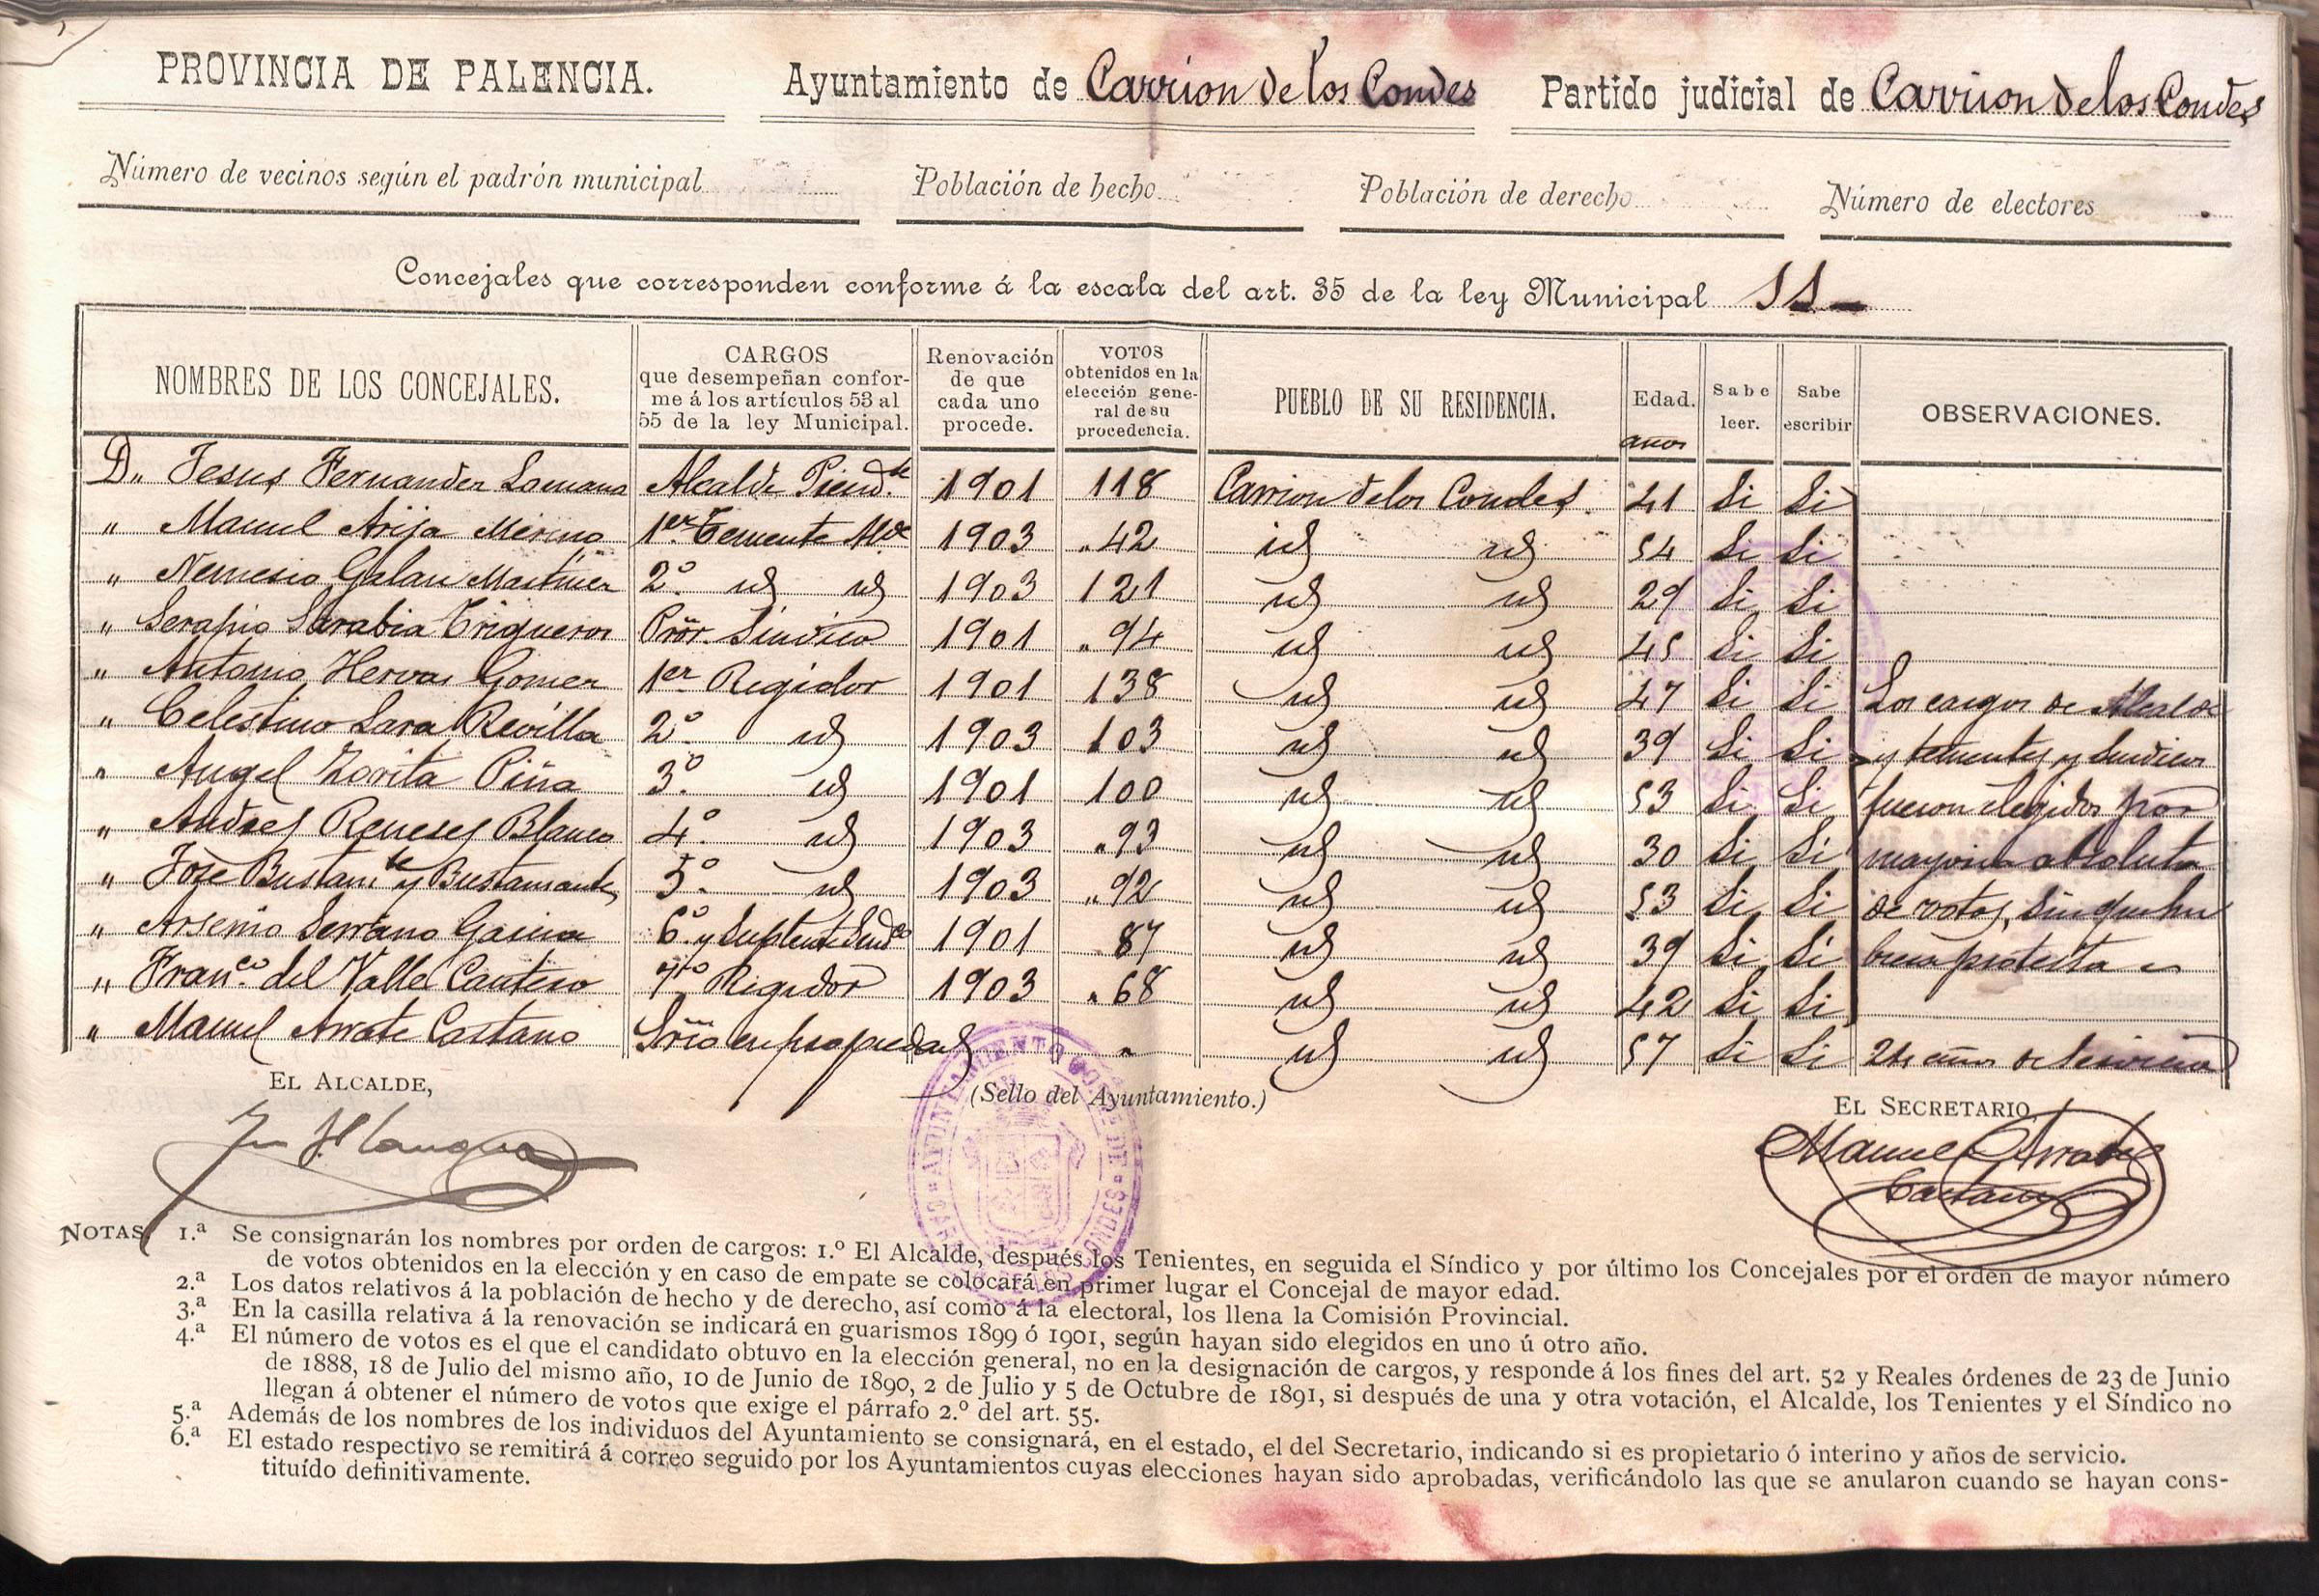 PROVINCIA DE PALENCIA. Ayuntamiento de Carrion de los Condes Partido judicial de Carrion de los Condes
Número de vecinos según el padrón municipal Población de hecho Población de derecho Número de electores
Concejales que corresponden conforme á la escala del art. 35 de la ley Municipal 11
NOMBRES DE LOS CONCEJALES. CARGOS que desempeñan confor- me á los artículos 53 al 55 de la ley Municipal. Renovación de que cada uno procede. VOTOS obtenidos en la elección gene- ral de su procedencia. PUEBLO DE SU RESIDENCIA. Edad. Sabe leer. Sabe escribir OBSERVACIONES.
años
D. Jesus Fernandez Lomana Alcalde Presid.te 1901 118 Carrion de los Condes. 41 Si Si
" Manuel Arija Merino 1er Teniente Al.de 1903 "42 id id 54 Si Si
" Nemesio Galan Martinez 2º id id 1903 121 id id 29 Si Si
" Serapio Sarabia Trigueros Pror. Sindico 1901 "94 id id 45 Si Si
" Antonio Hervas Gomez 1er Regidor 1901 138 id id 47 Si Si Los cargos de Alcalde
" Celestino Lara Revilla 2º id 1903 103 id id 39 Si Si y tenientes y Sindico
" Angel Zorita Piña 3º id 1901 100 id id 53 Si Si fueron elegidos por
" Andres Reneses Blanco 4º id 1903 "93 id id 30 Si Si mayoria absoluta
" Jose Bustam.te y Bustamante 5º id 1903 "92 id id 53 Si Si de votos, sin que hu
" Arsenio Serrano Garcia 6º y Suplente Sind.co 1901 87 id id 39 Si Si biera protesta
" Fran.co del Valle Cantero 7º Regidor 1903 "68 id id 42 Si Si
" Manuel Arrate Castaño Srio en propiedad " id id 57 Si Si 24 años de servicio
EL ALCALDE, (Sello del Ayuntamiento.) EL SECRETARIO,
Manuel Arrate
Castaño
NOTAS. 1.ª Se consignarán los nombres por orden de cargos: 1.º El Alcalde, después los Tenientes, en seguida el Síndico y por último los Concejales por el orden de mayor número
de votos obtenidos en la elección y en caso de empate se colocará en primer lugar el Concejal de mayor edad.
2.ª Los datos relativos á la población de hecho y de derecho, así como á la electoral, los llena la Comisión Provincial.
3.ª En la casilla relativa á la renovación se indicará en guarismos 1899 ó 1901, según hayan sido elegidos en uno ú otro año.
4.ª El número de votos es el que el candidato obtuvo en la elección general, no en la designación de cargos, y responde á los fines del art. 52 y Reales órdenes de 23 de Junio
de 1888, 18 de Julio del mismo año, 10 de Junio de 1890, 2 de Julio y 5 de Octubre de 1891, si después de una y otra votación, el Alcalde, los Tenientes y el Síndico no
llegan á obtener el número de votos que exige el párrafo 2.º del art. 55.
5.ª Además de los nombres de los individuos del Ayuntamiento se consignará, en el estado, el del Secretario, indicando si es propietario ó interino y años de servicio.
6.ª El estado respectivo se remitirá á correo seguido por los Ayuntamientos cuyas elecciones hayan sido aprobadas, verificándolo las que se anularon cuando se hayan cons-
tituído definitivamente.